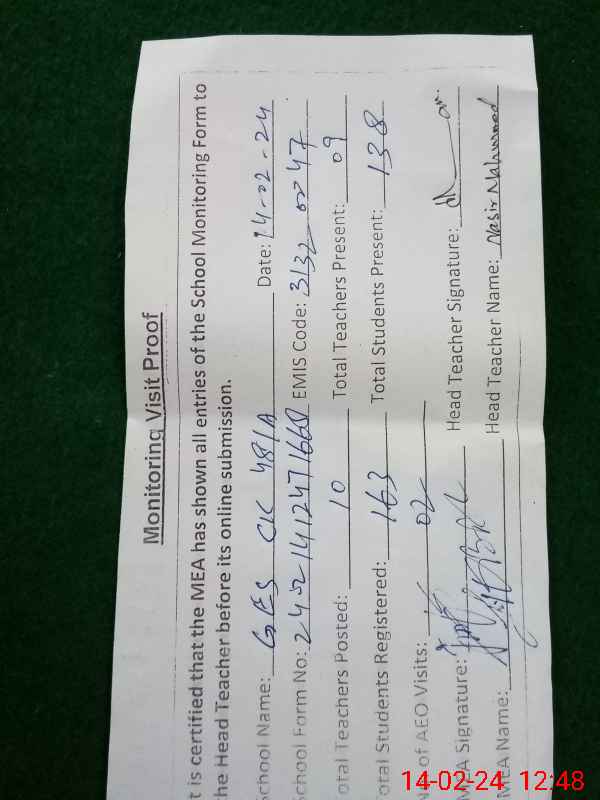 Monitoring Visit Proof
t is certified that the MEA has shown all entries of the School Monitoring Form to
he Head Teacher before its online submission.
chool Name: GES CK 48/A Date: 14-02-24
chool Form No: EMIS Code: 3132 0047
otal Teachers Posted: 10 Total Teachers Present: 09
otal Students Registered: 163 Total Students Present: 138
of AEO Visits: 02
MEA Signature: Head Teacher Signature:
MEA Name: Head Teacher Name: Nasir Mahmood
14-02-24 12:48